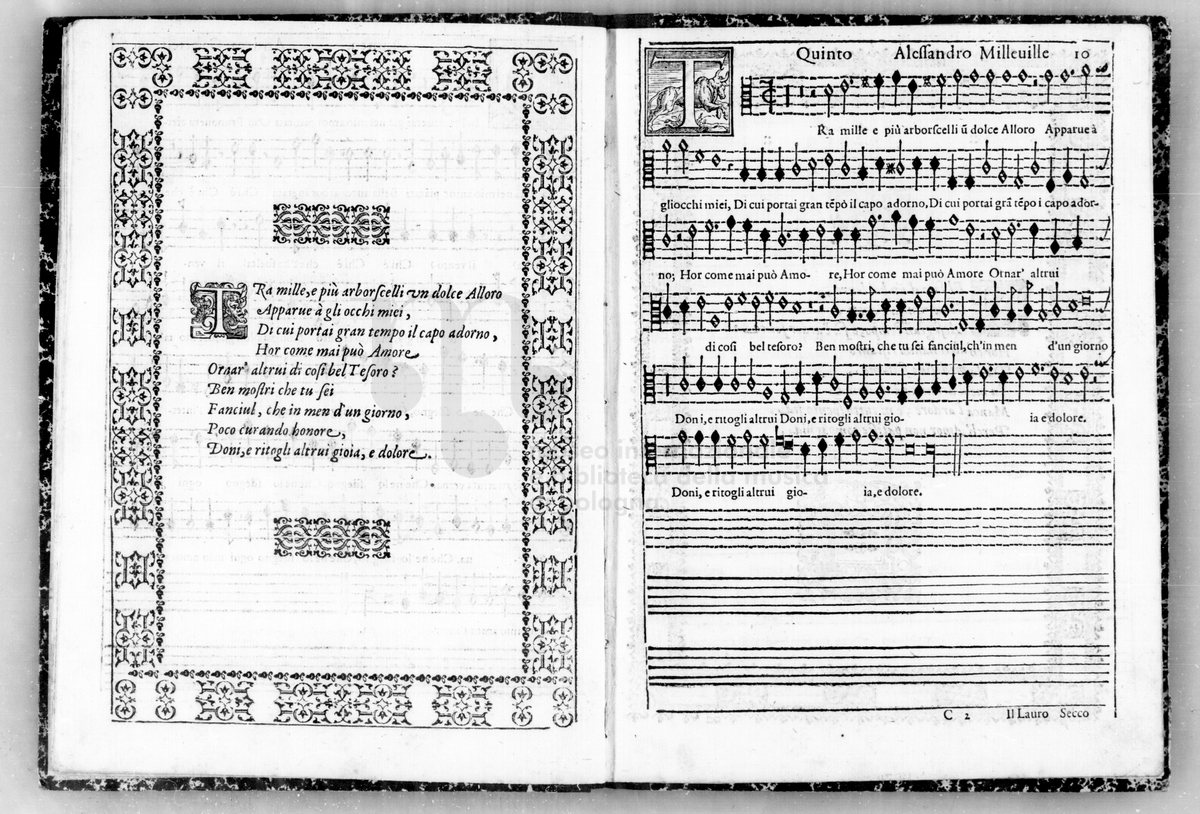 TRa mille, e più arborſcelli vn dolce Alloro
Apparue à gli occhi miei,
Di cui portai gran tempo il capo adorno,
Hor come mai può Amore
Ornar' altrui di coſi bel Teſoro?
Ben moſtri che tu ſei
Fanciul, che in men d'un giorno,
Poco curando honore,
Doni, e ritogli altrui gioia, e dolore.
Quinto Aleſſandro Milleuille 10
TRa mille e più arborſcelli ũ dolce Alloro Apparue à
gliocchi miei, Di cui portai gran tẽpo il capo adorno, Di cui portai grã tẽpo i capo ador-
no; Hor come mai può Amo- re, Hor come mai può Amore Ornar' altrui
di coſi bel teſoro? Ben moſtri, che tu ſei fanciul, ch'in men d'un giorno
Doni, e ritogli altrui Doni, e ritogli altrui gio- ia e dolore.
Doni, e ritogli altrui gio- ia, e dolore.
C 2 Il Lauro Secco
biblioteca della musica